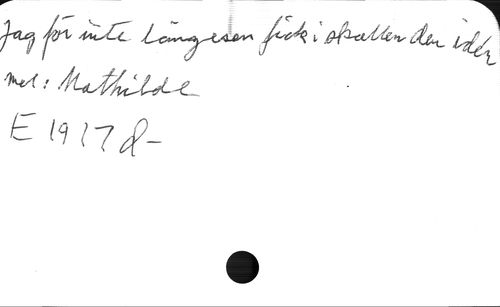 Jag för inte längesen fick i skallen den idén
mel: Mathilde
E 1917 d-